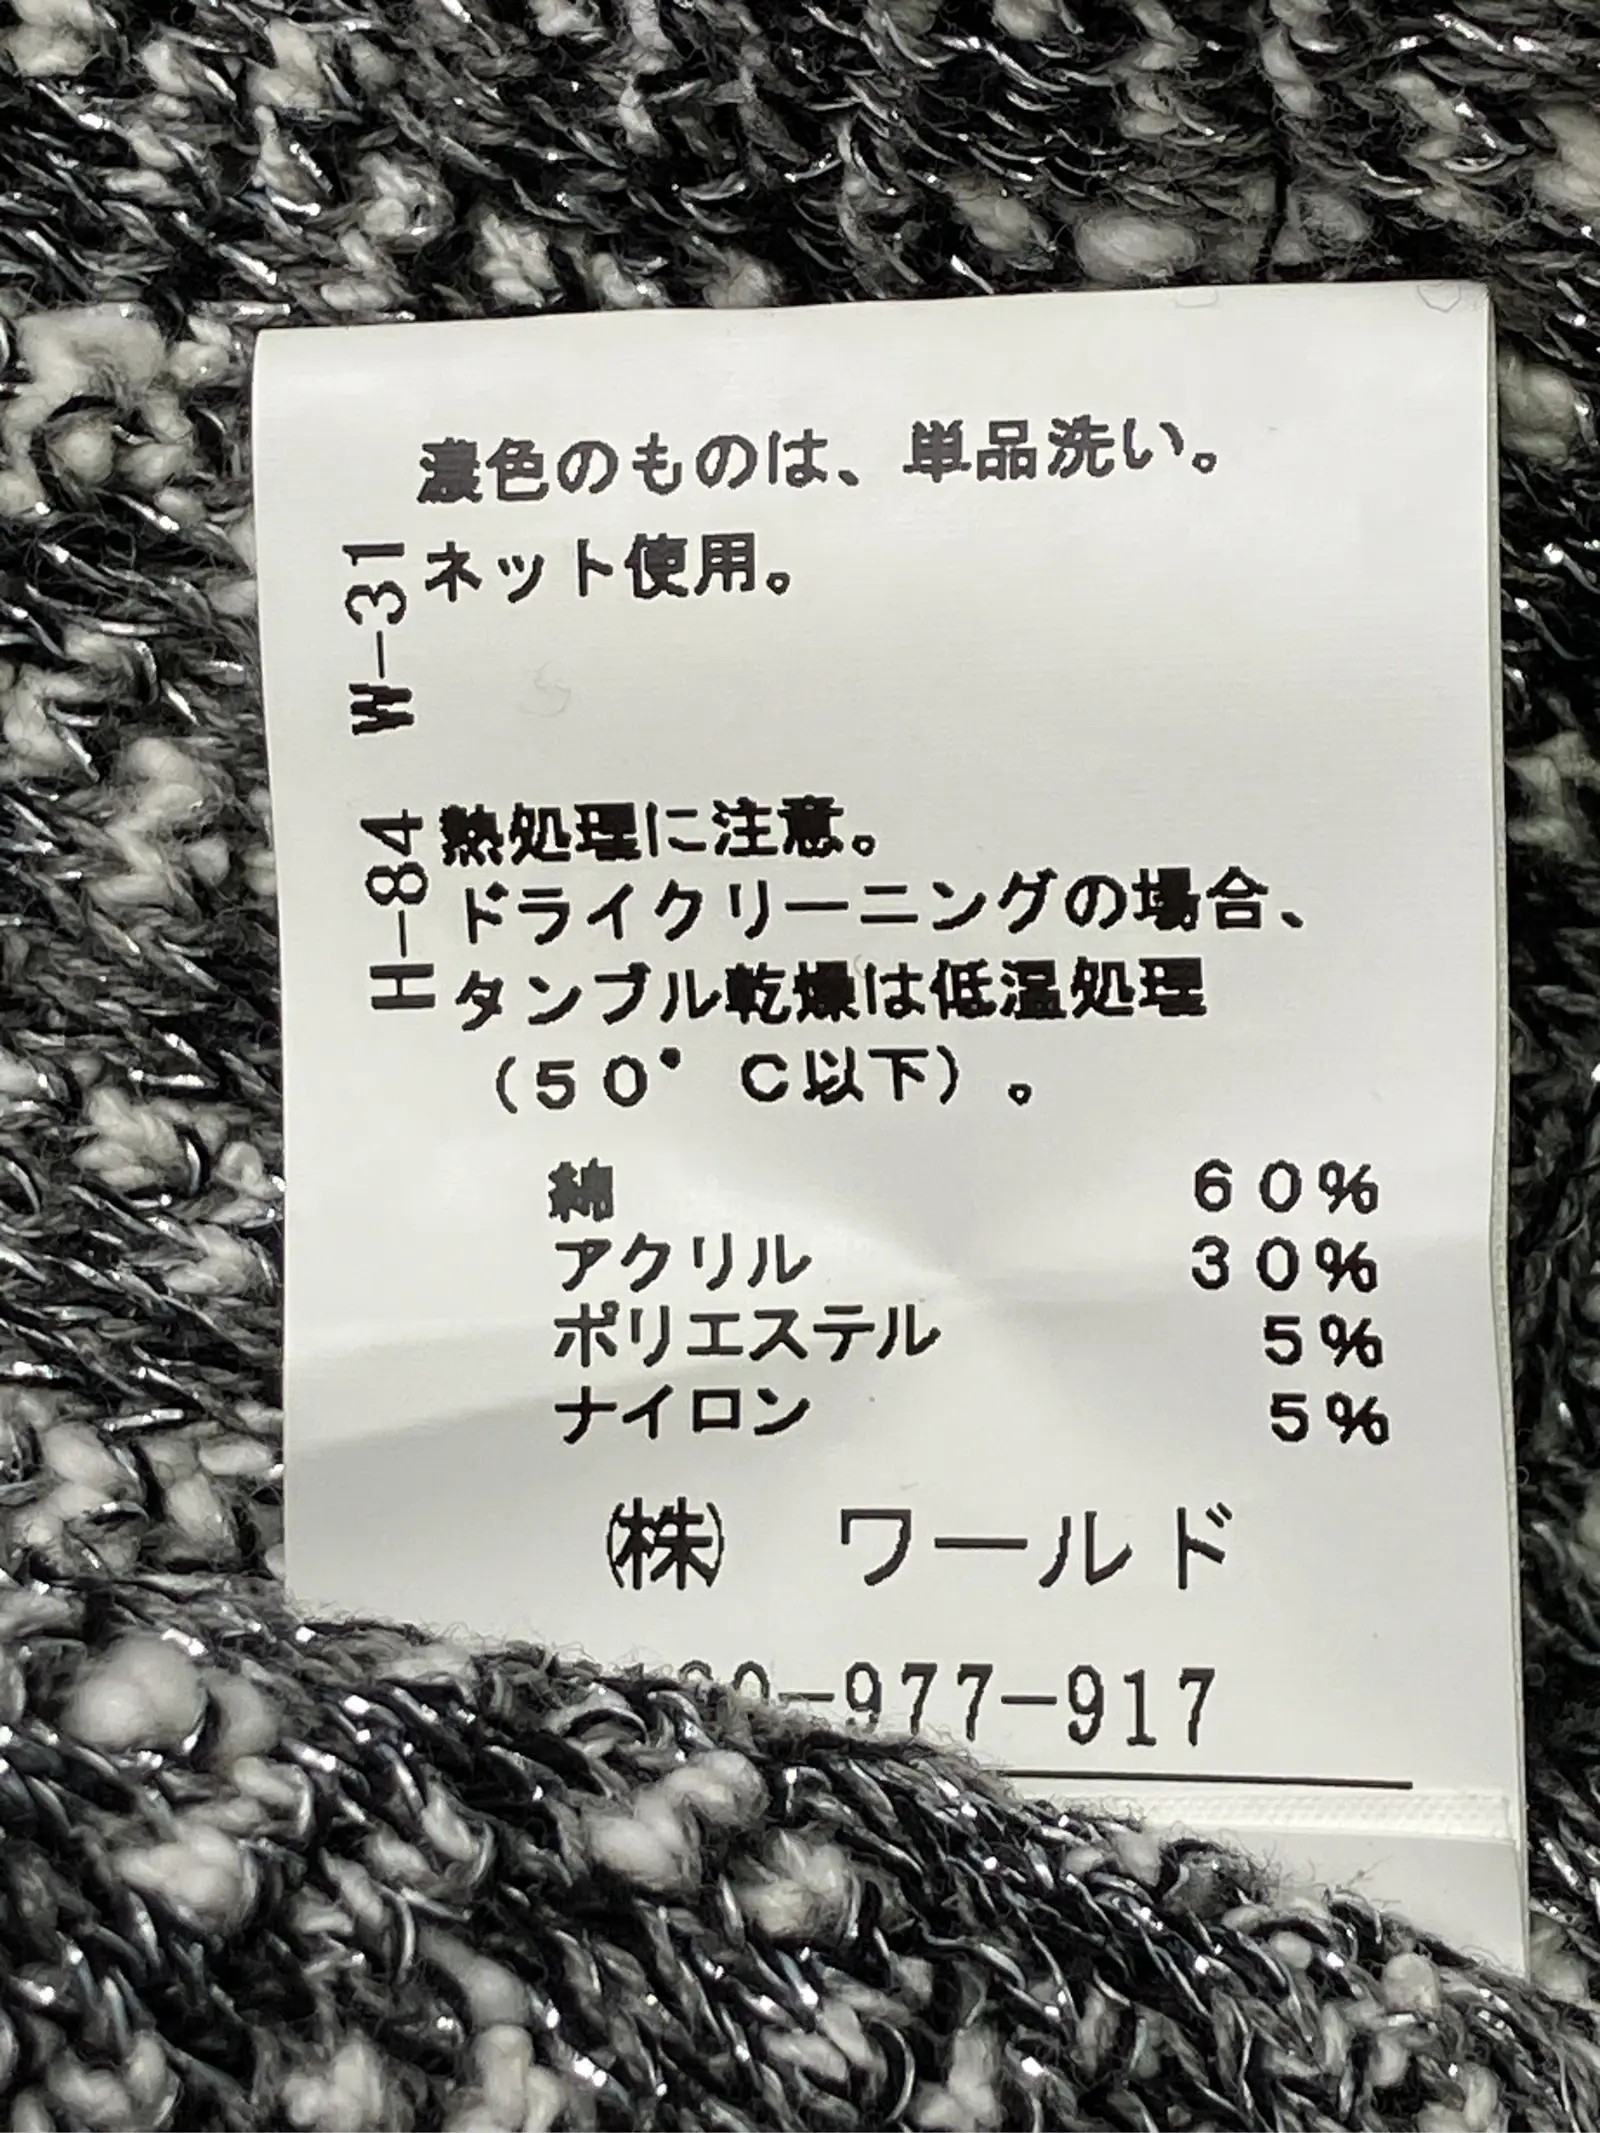 濃色のものは、単品洗い。
W-31
ネット使用。
H-84
熱処理に注意。
ドライクリーニングの場合、
タンブル乾燥は低温処理
(50°C以下)。
綿 60%
アクリル 30%
ポリエステル 5%
ナイロン 5%
㈱ ワールド
-977-917